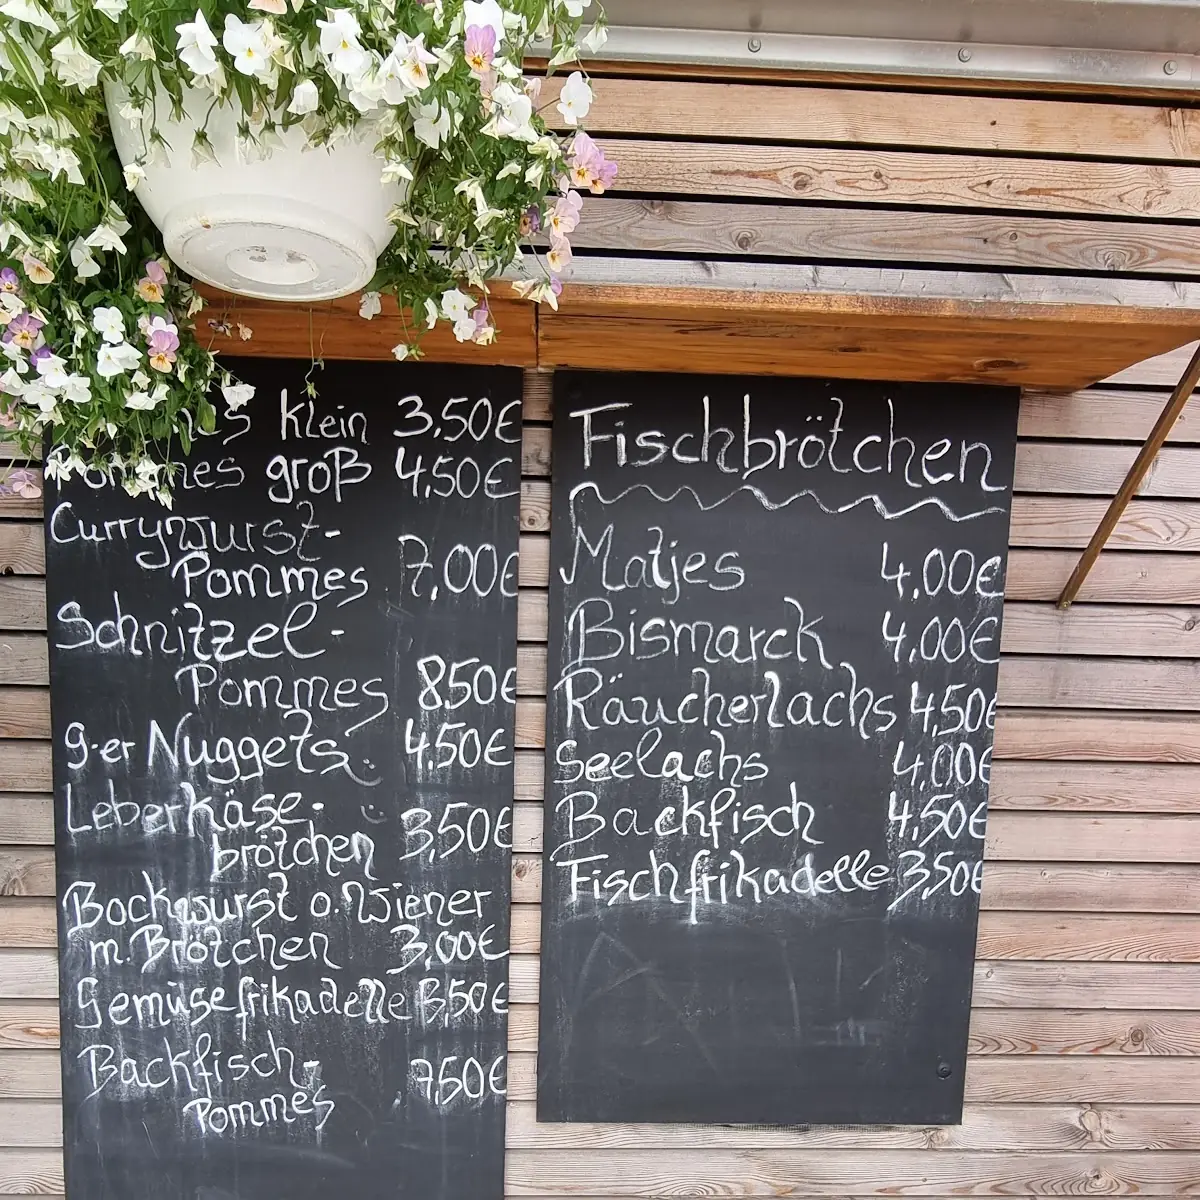 Klein 3,50€
Pommes groß 4,50€
Currywurst-
Pommes 7,00€
Schnitzel-
Pommes 8,50€
9-er Nuggets 4,50€
Leberkäse-
brötchen 3,50€
Bockwurst o. Wiener
m. Brötchen 3,00€
Gemüsefrikadelle 3,50€
Backfisch-
Pommes 7,50€
Fischbrötchen
Matjes 4,00€
Bismarck 4,00€
Räucherlachs 4,50€
Seelachs 4,00€
Backfisch 4,50€
Fischfrikadelle 3,50€